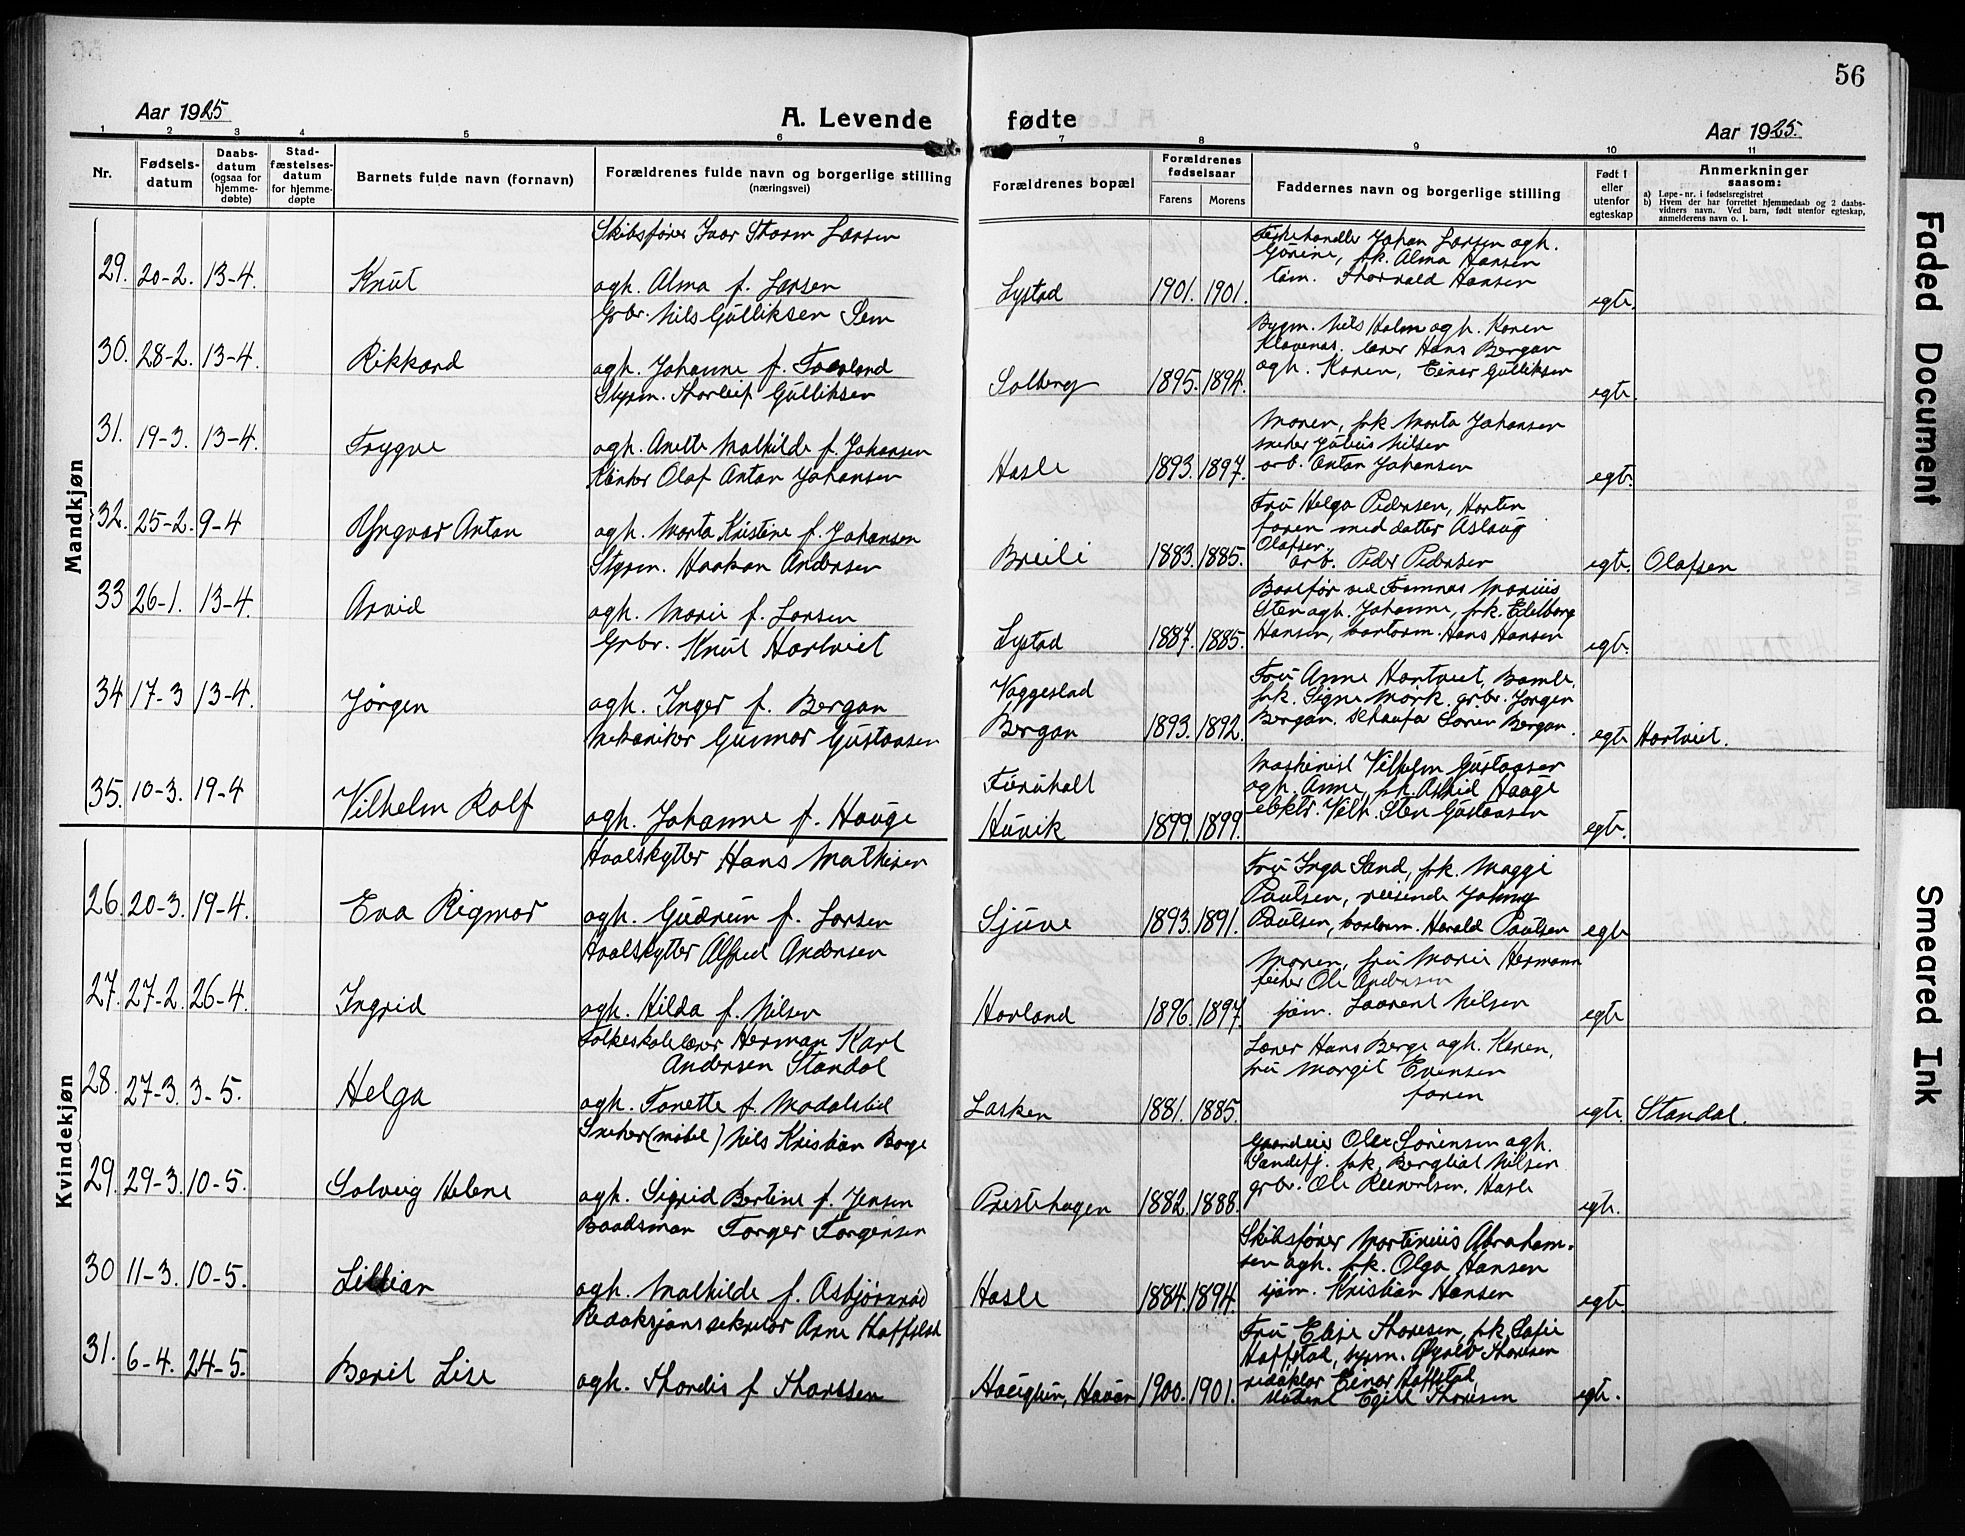 56
Aar 1925
A. Levende fødte
Aar 1925.
1 2 3 4 5 6 7 8 9 10 11
Nr.
Fødsels-
datum
Daabs-
datum
(ogsaa for
hjemme-
døbte)
Stad-
fæstelses-
datum
for hjemme-
døpte
Barnets fulde navn (fornavn)
Forældrenes fulde navn og borgerlige stilling
(næringsvei)
Forældrenes bopæl
Forældrenes
fødselsaar
Farens Morens
Faddernes navn og borgerlige stilling
Født i
eller
utenfor
egteskap
Anmerkninger
saasom:
a) Løpe-nr. i fødselsregistret
b) Hvem der har forrettet hjemmedaab og 2 daabs-
vidners navn. Ved barn, født utenfor egteskap,
anmelderens navn o. l.
Mandkjøn
29. 20-2. 13-4. Knut
Skibsfører Ivar Thorm Larsen
ogh. Alma f. Larsen
Lystad 1901. 1901.
Fiskehandler Johan Larsen ogh.
Gørine, frk. Alma Hansen
tøm. Thorvald Hansen
egte.
30. 28-2. 13-4. Rikkard
Grbr. Nils Gulliksen Sem
ogh. Johanne f. Foerland
Solberg 1895. 1894.
Bygm. Nils Holm ogh. Karen
Klavenæs. lærer Hans Bergan
ogh. Karen, Einar Gulliksen
egte.
31. 19-3. 13-4. Trygve
Styrm. Thorleif Gulliksen
ogh. Anette Mathilde f. Johansen
Hasle 1893. 1897.
Moren, frk Marta Johansen
snekker Julius Nilsen
arb. Anton Johansen
egte.
32. 25-2. 9-4 Yngvar Anton
Olaf Anton Johansen
ogh. Marta Kristine f. Johansen
Breili 1883. 1885.
Fru Helga Pedersen, Horten
faren med datter Aslaug
Olafsen.
arb. Peder Pedersen
egte. Olafsen
33 26-1. 13-4. Arvid
Styrm. Haakon Andersen
ogh. Marie f. Larsen
Lystad 1887. 1885.
Baatfør ved Framnæs Marius
Sten ogh. Johanne, frk. Edelborg
Hansen, Hans Hansen
egte.
34 17-3 13-4. Jørgen
Grbr. Knut Hartveit
ogh. Inger f. Bergan
Vaggestad
Bergan 1893. 1892.
Fru Anne Hartveit, Bamle,
frk. Signe Mørk. grbr. Jørgen
Bergan. Søren Bergan.
egte Hartveit.
35. 10-3. 19-4 Vilhelm Rolf
Mekaniker Gunnar Gustavsen
ogh. Johanne f. Hauge
Furuholt
Huvik 1899. 1899.
Maskinist Vilhelm Gustavsen
ogh. Anne, frk. Astrid Hauge
Vilh. Sten Gustavsen
egte.
Kvindekjøn
26. 20-3. 19-4. Eva Rigmor
Hvalskytter Hans Mathisen
ogh. Gudrun f. Larsen
Sjuve 1893. 1891.
Fru Inga Sand, frk. Maggi
Paulsen, reisende Johnny
Paulsen, Harald Paulsen
egte
27. 27-2. 26-4. Ingrid
Hvalskytter Alfred Andersen
ogh. Hilda f. Nilsen
Hovland 1896. 1897.
Moren, fru Marie Hermann
feier Ole Andersen
sjøm. Laurent Nilsen
egte
28. 27-3. 3-5. Helga
Folkeskolelærer Herman Karl
Andersen Standal
ogh. Tonette f. Modalstid
Lasken 1881. 1885.
Lærer Hans Berge ogh. Karen,
fru Margit Evensen
faren
egte Standal.
29. 29-3. 10-5. Solveig Helene
Snekker (møbel) Nils Kristian Borge
ogh. Sigrid Bertine f. Jensen
Prestehagen 1882. 1888.
Gaardeier Ole Sørensen ogh.
Sandefj. frk. Bergliot Nilsen
grbr. Ole Reinertsen, Hasle
egte.
30 11-3. 10-5. Lillian
Baadsman Torger Torgersen
ogh. Mathilde f. Asbjørnrød
Hasle 1884. 1894.
Skibsfører Martinius Abraham-
sen ogh. frk. Olga Hansen
sjøm. Kristian Hansen
egte
31. 6-4. 24-5. Berit Lise
Redaksjonssekretær Arne Hoffstad
ogh. Thordis f Thoresen
Haugtun, Havån 1900. 1901.
Fru Elise Thoresen, frk. Sofie
Hoffstad, styrm. Øyolv Thoresen
redaktør Einar Hoffstad
student Egill Thoresen
egte.
Faded Document
Smeared Ink